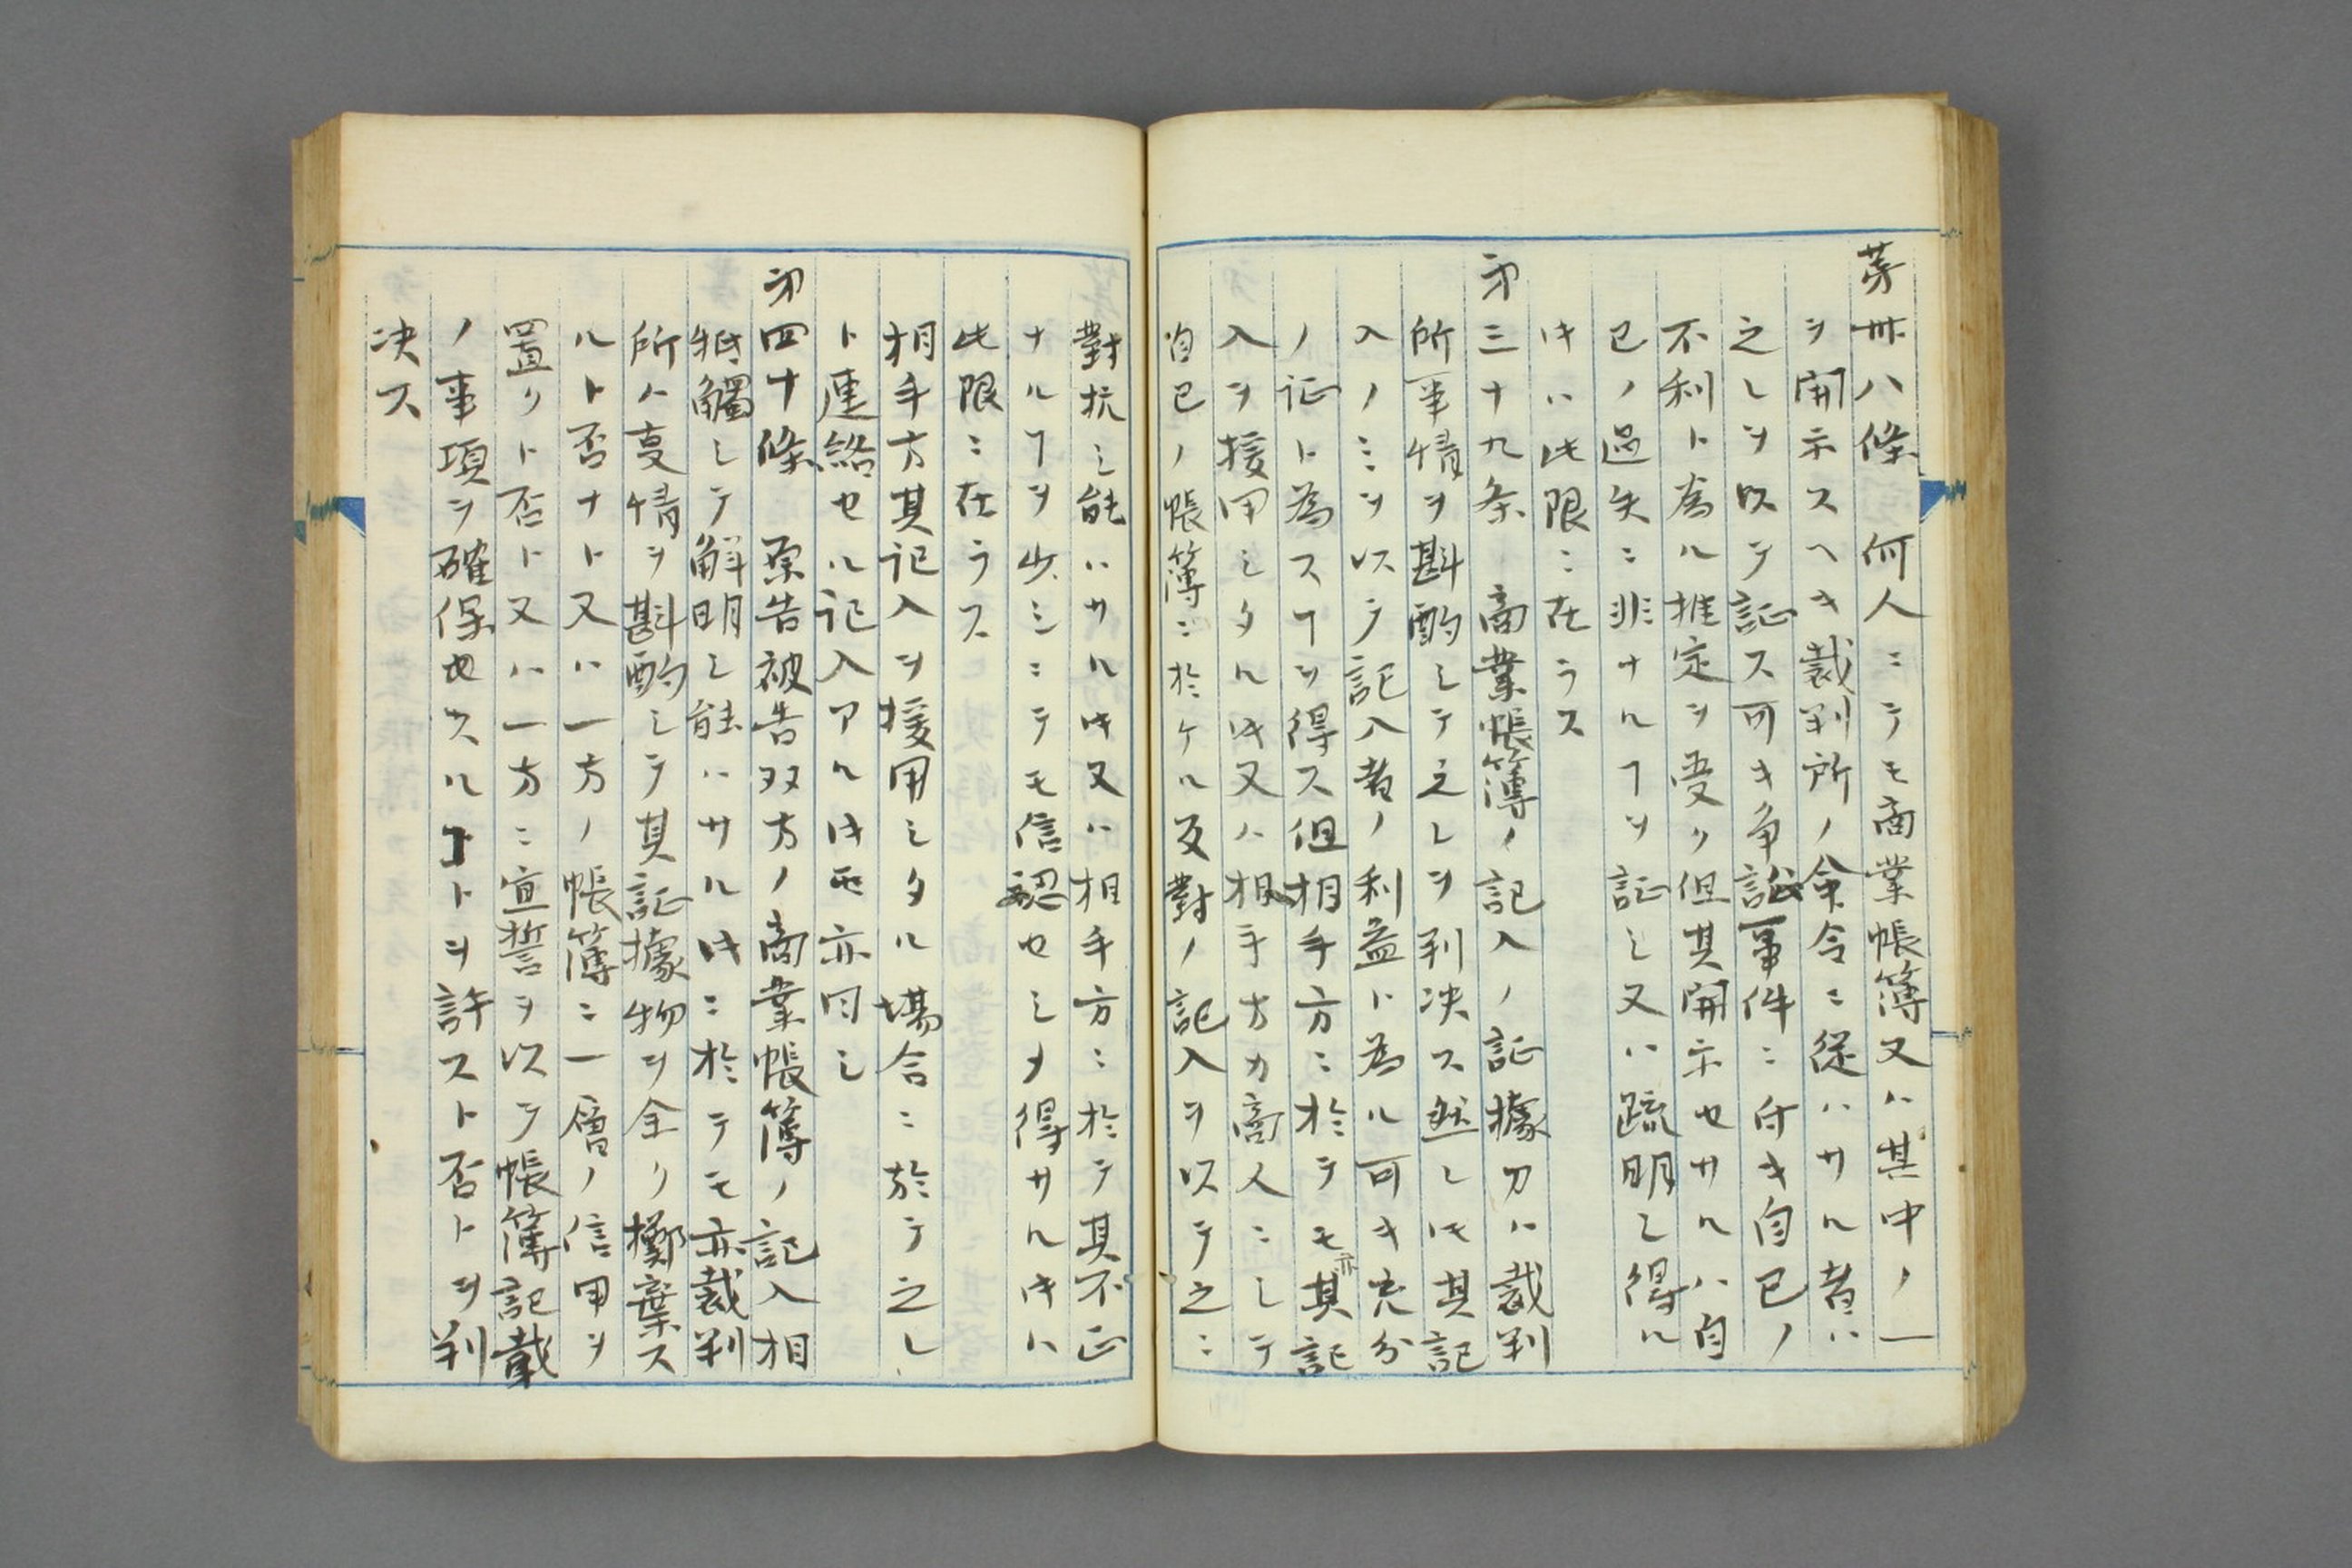 第卅八條 何人ニテモ商業帳簿又ハ其中ノ一
ヲ開示スヘキ裁判所ノ命令ニ従ハサル者ハ
之レヲ以テ証ス可キ争訟事件ニ付キ自己ノ
不利ト為ル推定ヲ受ク但其開示セサルハ自
己ノ過失ニ非ナルヿヲ証シ又ハ疏明シ得ル
ㇳキハ此限ニ在ラス
第三十九条 商業帳簿ノ記入ノ証據力ハ裁判
所事情ヲ斟酌シテ之レヲ判决ス然レㇳキ其記
入ノミヲ以テ記入者ノ利益ト為ル可キ充分
ノ証ト為スヿヲ得ス但相手方ニ於テモ亦其記
入ヲ援用シタルㇳキ又ハ相手方カ商人ニシテ
自己ノ帳簿ニ於ケル反對ノ記入ヲ以テ之ニ
對抗シ能ハサルㇳキ又ハ相手方ニ於テ其不正
ナルヿヲ少シニテモ信認セシメ得サルㇳキハ
此限ニ在ラス
相手方其記入ヲ援用シタル場合ニ於テ之レ
ト連絡セル記入アルㇳキモ亦同シ
第四十條 原告被告双方ノ商業帳簿ノ記入相
牴觸シテ解明シ能ハサルㇳキニ於テモ亦裁判
所ハ事情ヲ斟酌シテ其証據物ヲ全ク擲棄ス
ルト否ナト又ハ一方ノ帳簿ニ一層ノ信用ヲ
置クト否ト又ハ一方ニ宣誓ヲ以テ帳簿記載
ノ事項ヲ確保セスルコトヲ許スト否トヲ判
决ス